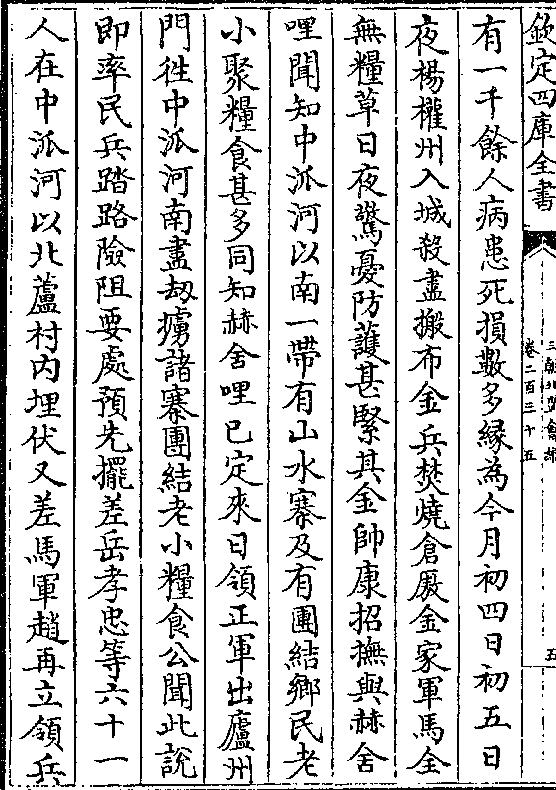 欽定四庫全書
三朝北盟會編
卷二百三十五
五
有一千餘人病患死損數多緣為今月初四日初五日
夜楊權州入城殺盡搬布金兵焚燒倉厫金家軍馬全
無糧草日夜驚憂防護甚緊其金帥康招撫與赫舍
哩聞知中派河以南一帶有山水寨及有團結鄉民老
小聚糧食甚多同知赫舍哩已定來日領正軍出廬州
門徃中派河南盡刼擄諸寨團結老小糧食公聞此說
即率民兵踏路險阻要處預先擺差岳孝忠等六十一
人在中派河以北蘆村内埋伏又差馬軍趙再立領兵